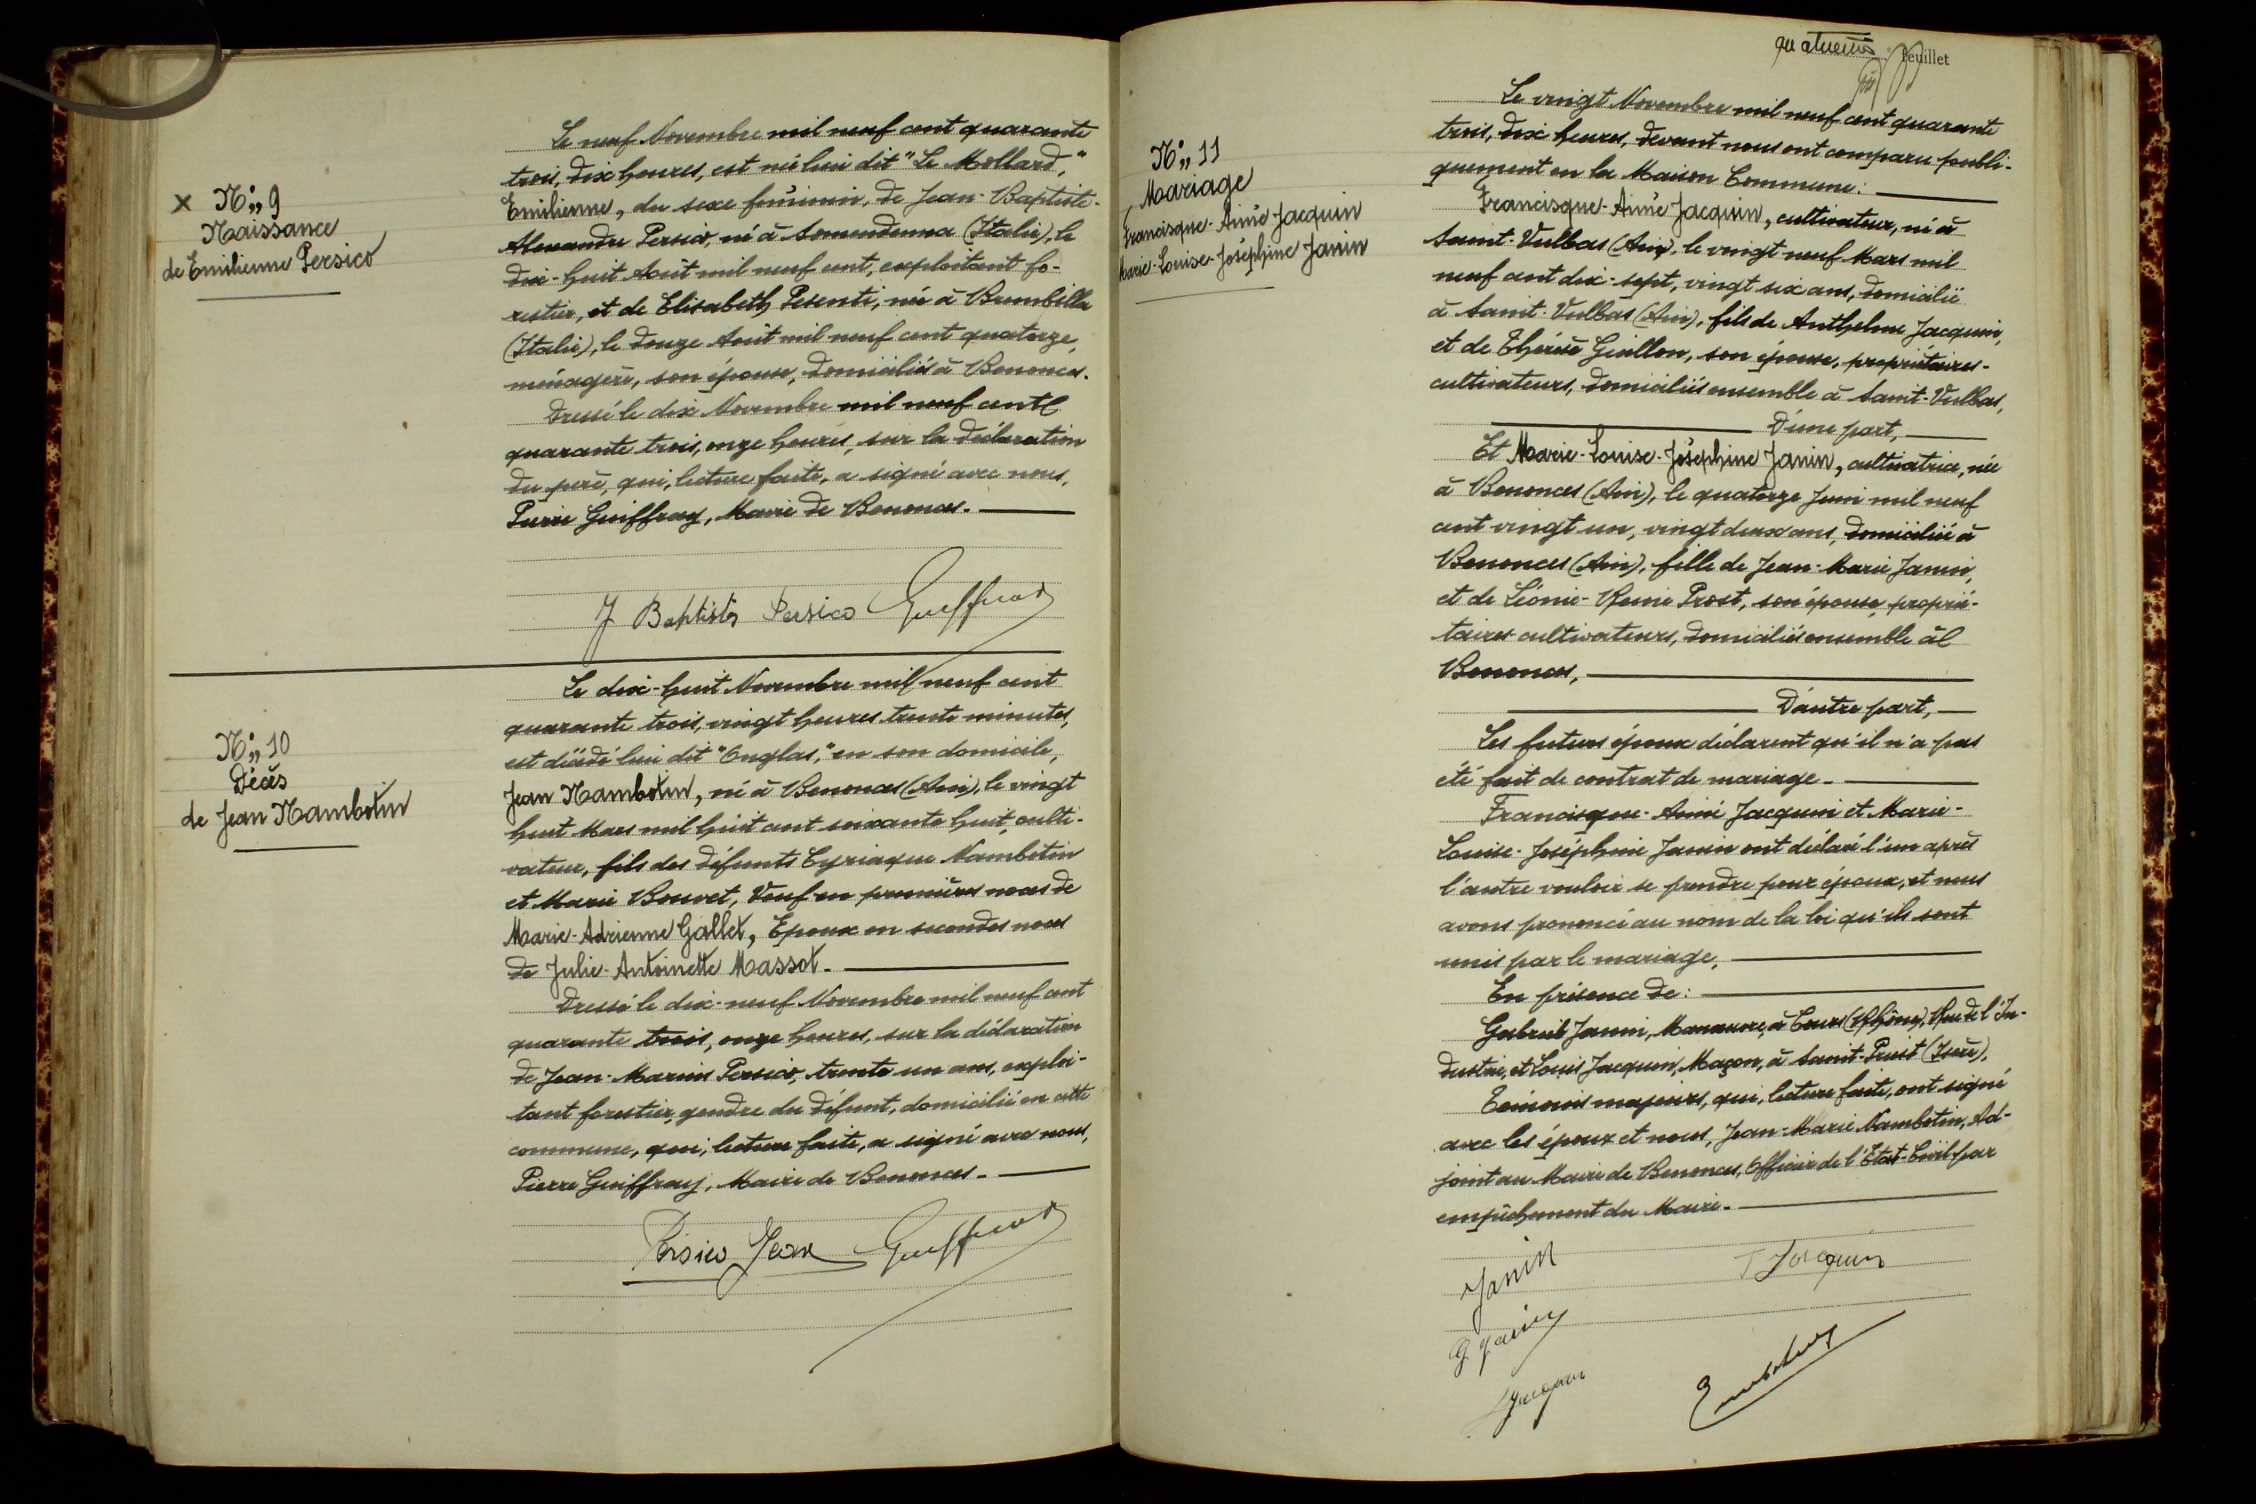 X N° 9
Naissance
de Emilienne Persico
Le neuf Novembre mil neuf cent quarante
trois, dix heures, est née lieu dit "Le Mollard,"
Emilienne, du sexe féminin, de Jean-Baptiste-
Alexandre Persico, né à Somendenna (Italie), le
dix-huit Août mil neuf cent, exploitant fo-
restier, et de Elisabeth Pesenti, née à Brembilla
(Italie), le douze Août mil neuf cent quatorze,
ménagère, son épouse, domiciliés à Benonces.
Dressé le dix Novembre mil neuf cent
quarante trois, onze heures, sur la déclaration
du père, qui, lecture faite, a signé avec nous,
Pierre Guiffray, Maire de Benonces.
J Baptiste Persico Guiffray
N° 10
Décès
de Jean Nambotin
Le dix-huit Novembre mil neuf cent
quarante trois, vingt heures trente minutes,
est décédé lieu dit "Onglas," en son domicile,
Jean Nambotin, né à Benonces (Ain), le vingt
huit Mars mil huit cent soixante huit, culti-
vateur, fils des défunts Cyriaque Nambotin
et Marie Bouvet, Veuf en premières noces de
Marie-Adrienne Gallet, Epoux en secondes noces
de Julie-Antoinette Massot.
Dressé le dix-neuf Novembre mil neuf cent
quarante trois, onze heures, sur la déclaration
de Jean-Marius Persico, trente un ans, exploi-
tant forestier, gendre du défunt, domicilié en cette
commune, qui, lecture faite, a signé avec nous,
Pierre Guiffray, Maire de Benonces.
Persico Jean Guiffray
quatrième Feuillet
N° 11
Mariage
Francisque-Aimé Jacquin
Marie-Louise-Joséphine Janin
Le vingt Novembre mil neuf cent quarante
trois, dix heures, devant nous ont comparu publi-
quement en la Maison Commune:
Francisque-Aimé Jacquin, cultivateur, né à
Saint-Vulbas (Ain), le vingt neuf Mars mil
neuf cent dix-sept, vingt six ans, domicilié
à Saint-Vulbas (Ain), fils de Anthelme Jacquin,
et de Thérèse Guillon, son épouse, propriétaires-
cultivateurs, domiciliés ensemble à Saint-Vulbas,
D'une part,
Et Marie-Louise-Joséphine Janin, cultivatrice, née
à Benonces (Ain), le quatorze Juin mil neuf
cent vingt un, vingt deux ans, domiciliée à
Benonces (Ain), fille de Jean-Marie Janin,
et de Léonie-Reine Prost, son épouse, proprié-
taires cultivateurs, domiciliés ensemble à
Benonces,
D'autre part,
Les futurs époux déclarent qu'il n'a pas
été fait de contrat de mariage.
Francisque-Aimé Jacquin et Marie-
Louise-Joséphine Janin ont déclaré l'un après
l'autre vouloir se prendre pour époux, et nous
avons prononcé au nom de la loi qu'ils sont
unis par le mariage,
En présence de:
Gabriel Janin, Manœuvre, à Cours (Rhône), Rue de l'In-
dustrie, et Louis Jacquin, Maçon, à Saint-Priest (Isère),
Témoins majeurs, qui, lecture faite, ont signé
avec les époux et nous, Jean-Marie Nambotin, Ad-
joint au Maire de Benonces, Officier de l'Etat-Civil par
empêchement du Maire.
Janin Jacquin
G Janin
Jacquin Nambotin